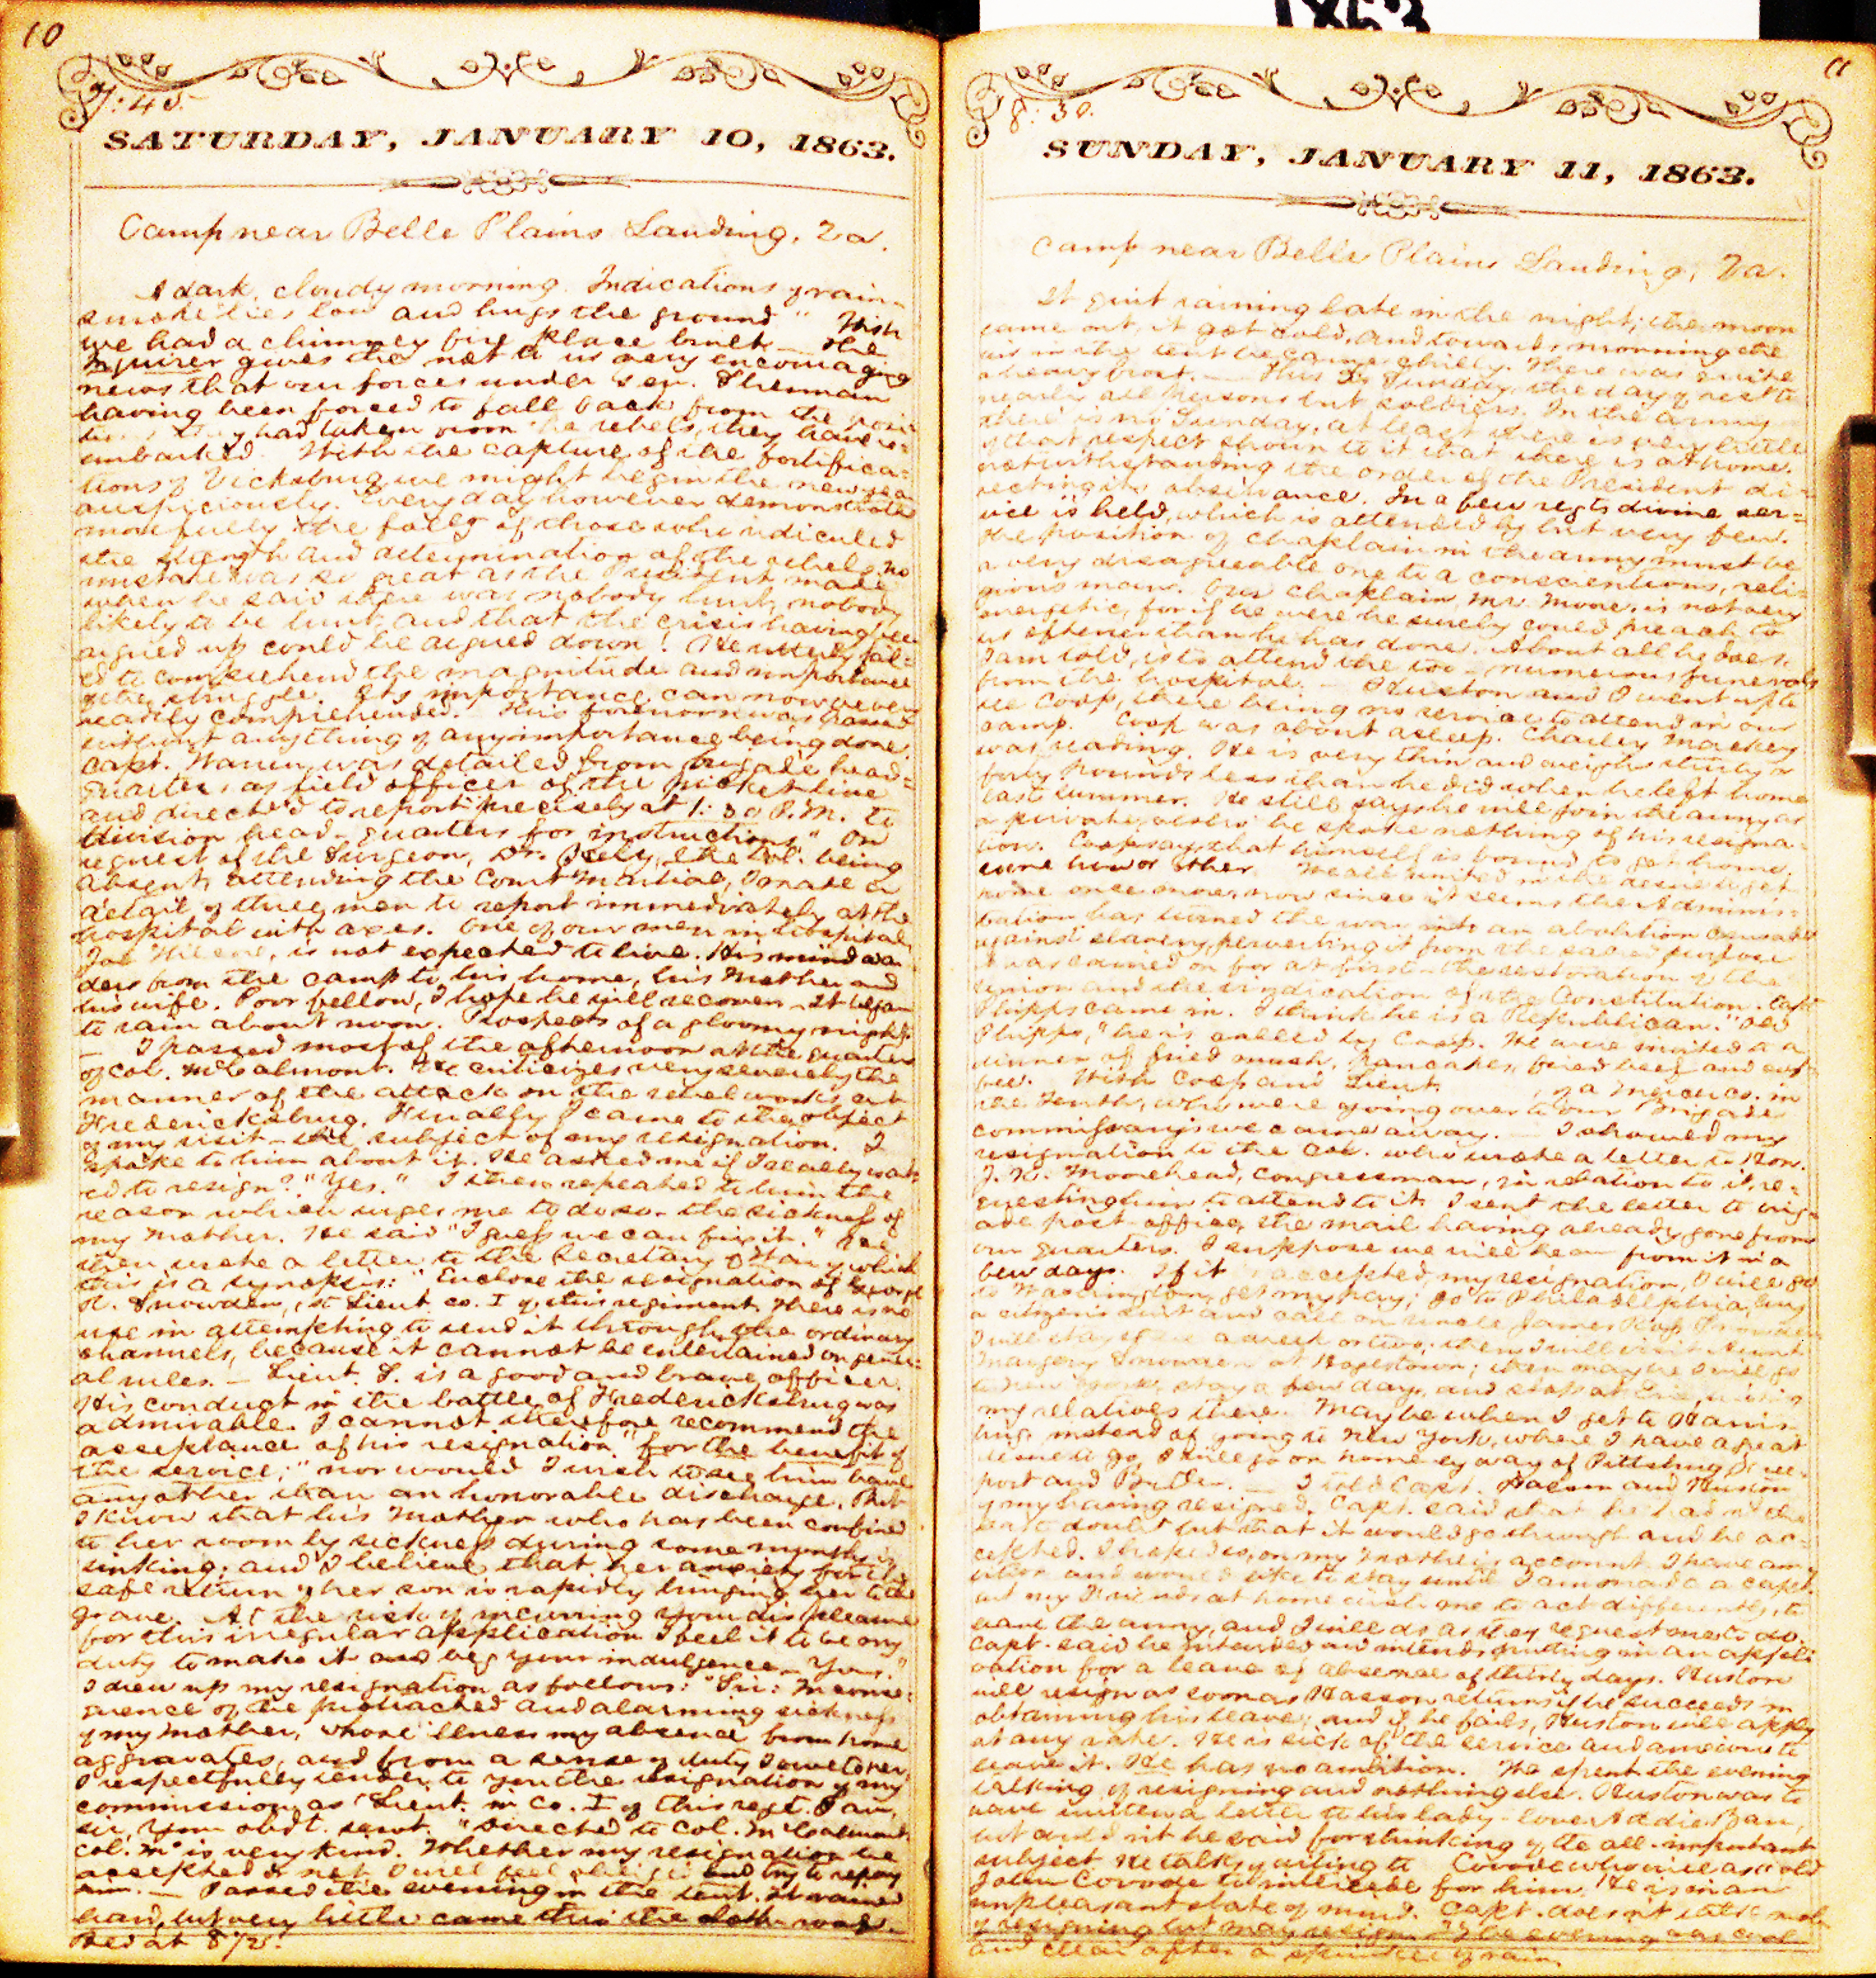 10
7:45
SATURDAY, JANUARY 10, 1863.
Camp near Belle Plains Landing, Va.
A dark, cloudy morning. Indications of rain
smoke lies low and hugs the ground" Wish
we had a chimney fire place built — The
Inquirer gives the not to us very encouraging
news that our forces under Gen. Sherman
having been forced to fall back from the posi
they had taken from the rebels, they have re-
embarked. With the capture of the fortifica-
tions of Vicksburg we might begin the new year
auspiciously. Every day however demonstrates
more fully the folly of those who ridiculed
the strength and determination of the rebels, no
mistake was so great as the President made
when he said there was nobody hurt, nobody
likely to be hurt, and that the crisis having been
argued up could be argued down! He utterly fail-
ed to comprehend the magnitude and importance
of the struggle. Its importance can now never
readily comprehended. This forenoon was passed
without anything of any importance being done.
Capt. Warren was detailed from brigade head-
quarters as field officer of the picket line
and directed to report "precisely at 1:30 P.M. to
division head-quarters for instructions" On
request of the Surgeon, Dr. the Col. being
absent attending the Court Martial, I made a
detail of three men to report immediately at the
hospital with axes. One of our men in hospital,
is not expected to live. His mind wan
ders from the camp to his home, his Mother and
his wife. Poor fellow, I hope he will recover — It began
to rain about noon. Prospects of a gloomy night.
— I passed most of the afternoon at the quarters
of Col. McCalmont. He criticizes very severely the
manner of the attack on the rebel works at
Fredericksburg. Finally I came to the object
of my visit — the subject of my resignation. I
spoke to him about it. He asked me if I really want
ed to resign? "Yes." I then repeated to him the
reason which urges me to do so — the sickness of
my Mother. He said "I guess we can fix it." He
then wrote a letter to the Secretary of War, of which
this is a synopsis: "Enclose the resignation of George
R. Snowden, 1st Lieut. co. I of this regiment. There is no
use in attempting to send it through the ordinary
channels, because it cannot be entertained on gener-
al rules. — Lieut. S. is a good and brave officer.
His conduct in the battle of Fredericksburg was
admirable. I cannot therefore recommend the
acceptance of his resignation "for the benefit of
the service;" nor would I wish to see him have
any other than an honorable discharge. But
I know that his Mother who has been confined
to her room by sickness during some months is
sinking; and I believe that her anxiety for the
safe return of her son is rapidly bringing her to the
grave. At the risk of incurring your displeasure
for this irregular application I feel it to be my
duty to make it and beg your indulgence — Yours."
I drew up my resignation as follows: "Sir: In conse-
quence of the protracted and alarming sickness
of my Mother, whose illness my absence from home
aggravates, and from a sense of duty I owe to her,
I respectfully tender to you the resignation of my
commission as 1st Lieut. in Co. I of this regt. I am,
sir, Your obdt. servt. "Directed to Col. McCalmont.
Col. M° is very kind. Whether my resignation be
accepted or not I will feel obliged and try to repay
him. — Passed the evening in the tent. It rained
hard, but very little came thro' the cloth roof.
Bed at 8 1/2.
1863
11
8:30.
SUNDAY, JANUARY 11, 1863.
Camp near Belle Plains Landing, Va.
It quit raining late in the night; the moon
came out, it got cold, and towards morning the
air in the tent became chilly. There was quite
a heavy frost. — This is Sunday, the day of rest to
nearly all persons but soldiers. In the army
there is no Sunday, at least there is very little
of that respect shown to it that there is at home.
notwithstanding the order of the President di-
recting its observance. In a few regts divine ser-
vice is held, which is attended by but very few.
The position of chaplain in the army must be
a very disagreeable one to a conscientious, reli-
gious man. Our chaplain, Mr. Moore, is not very
energetic, for if he were he surely could preach to
us oftener than he has done. About all he does
I am told, is to attend the too-numerous funerals
from the hospital. — Huston and I went up to
see Coop, there being no service to attend in our
camp. Coop was about asleep. Charley Mackey
was reading. He is very thin and weighs thirty or
forty pounds less than he did when he left home
last summer. He still says he will join the army as
a private, altho' he spoke nothing of his resigna-
tion. Coop says that himself is bound to get home
some how or other. We all united in the desire to get
home once more, now since it seems the Adminis-
tration has turned the war into an abolition crusade
against slavery, perverting it from the sacred purpose
it was carried on for at first — the restoration of the
Union and the vindication of the Constitution. Capt
Phipps came in. I think he is a Republican. "Old
Phipps," he is called by Coop. We were invited to a
dinner of fried mush, pancakes, fried beef and cof-
fee. With Coop and Lieut. of a Mercer co. in
the Tenth, who were going over to our brigade
commissary's we came away. — I showed my
resignation to the Col. who wrote a letter to Hon.
J. K. Moorehead, Congressman, in relation to it, re-
questing him to attend to it. I sent the letter to brig-
ade post-office, the mail having already gone from
our quarters. I suppose we will hear from it in a
few days. If it is accepted, my resignation, I will go
to Washington, get my pay; go to Philadelphia, buy
a citizen's suit and call on uncle James Ross Snowden
I will stay there a week or two; then I will visit Aunt
Margery Snowden at Hagestown; then may be I will go
to New York, stay a few days, and stop at Erie, visiting
my relatives there. May be when I get to Harris-
burg, instead of going to New York, where I have a great
desire to go, I will go on home by way of Pittsburg, Free-
port and Butler. — I told Capt. Hasson and Huston
of my having resigned. Capt. said that he hadn't the
least doubt but that it would go through and be ac-
cepted. I hope so, on my Mother's account. I have am-
bition and would like to stay until I am made a Capt.
but my Friends at home wish me to act differently, to
leave the army, and I will do as they request me to do.
Capt. said he intended and intends putting in an appli-
cation for a leave of absence of thirty days. Huston
will resign as soon as Hasson returns if he succeeds in
obtaining his leave; and if he fails, Huston will apply
at any rate. He is sick of the service and anxious to
leave it. He has no ambition. We spent the evening
talking of resigning and nothing else. Huston was to
have written a letter to his lady-love Addie
but couldn't he said for thinking of the all-important
subject. He talks of writing to Covode who will ask old
John Covode to intercede for him. He is in an
unpleasant state of mind. Capt. doesn't talk much
of resigning but may resign. The evening was cool
and clear after a sprinkle of rain.